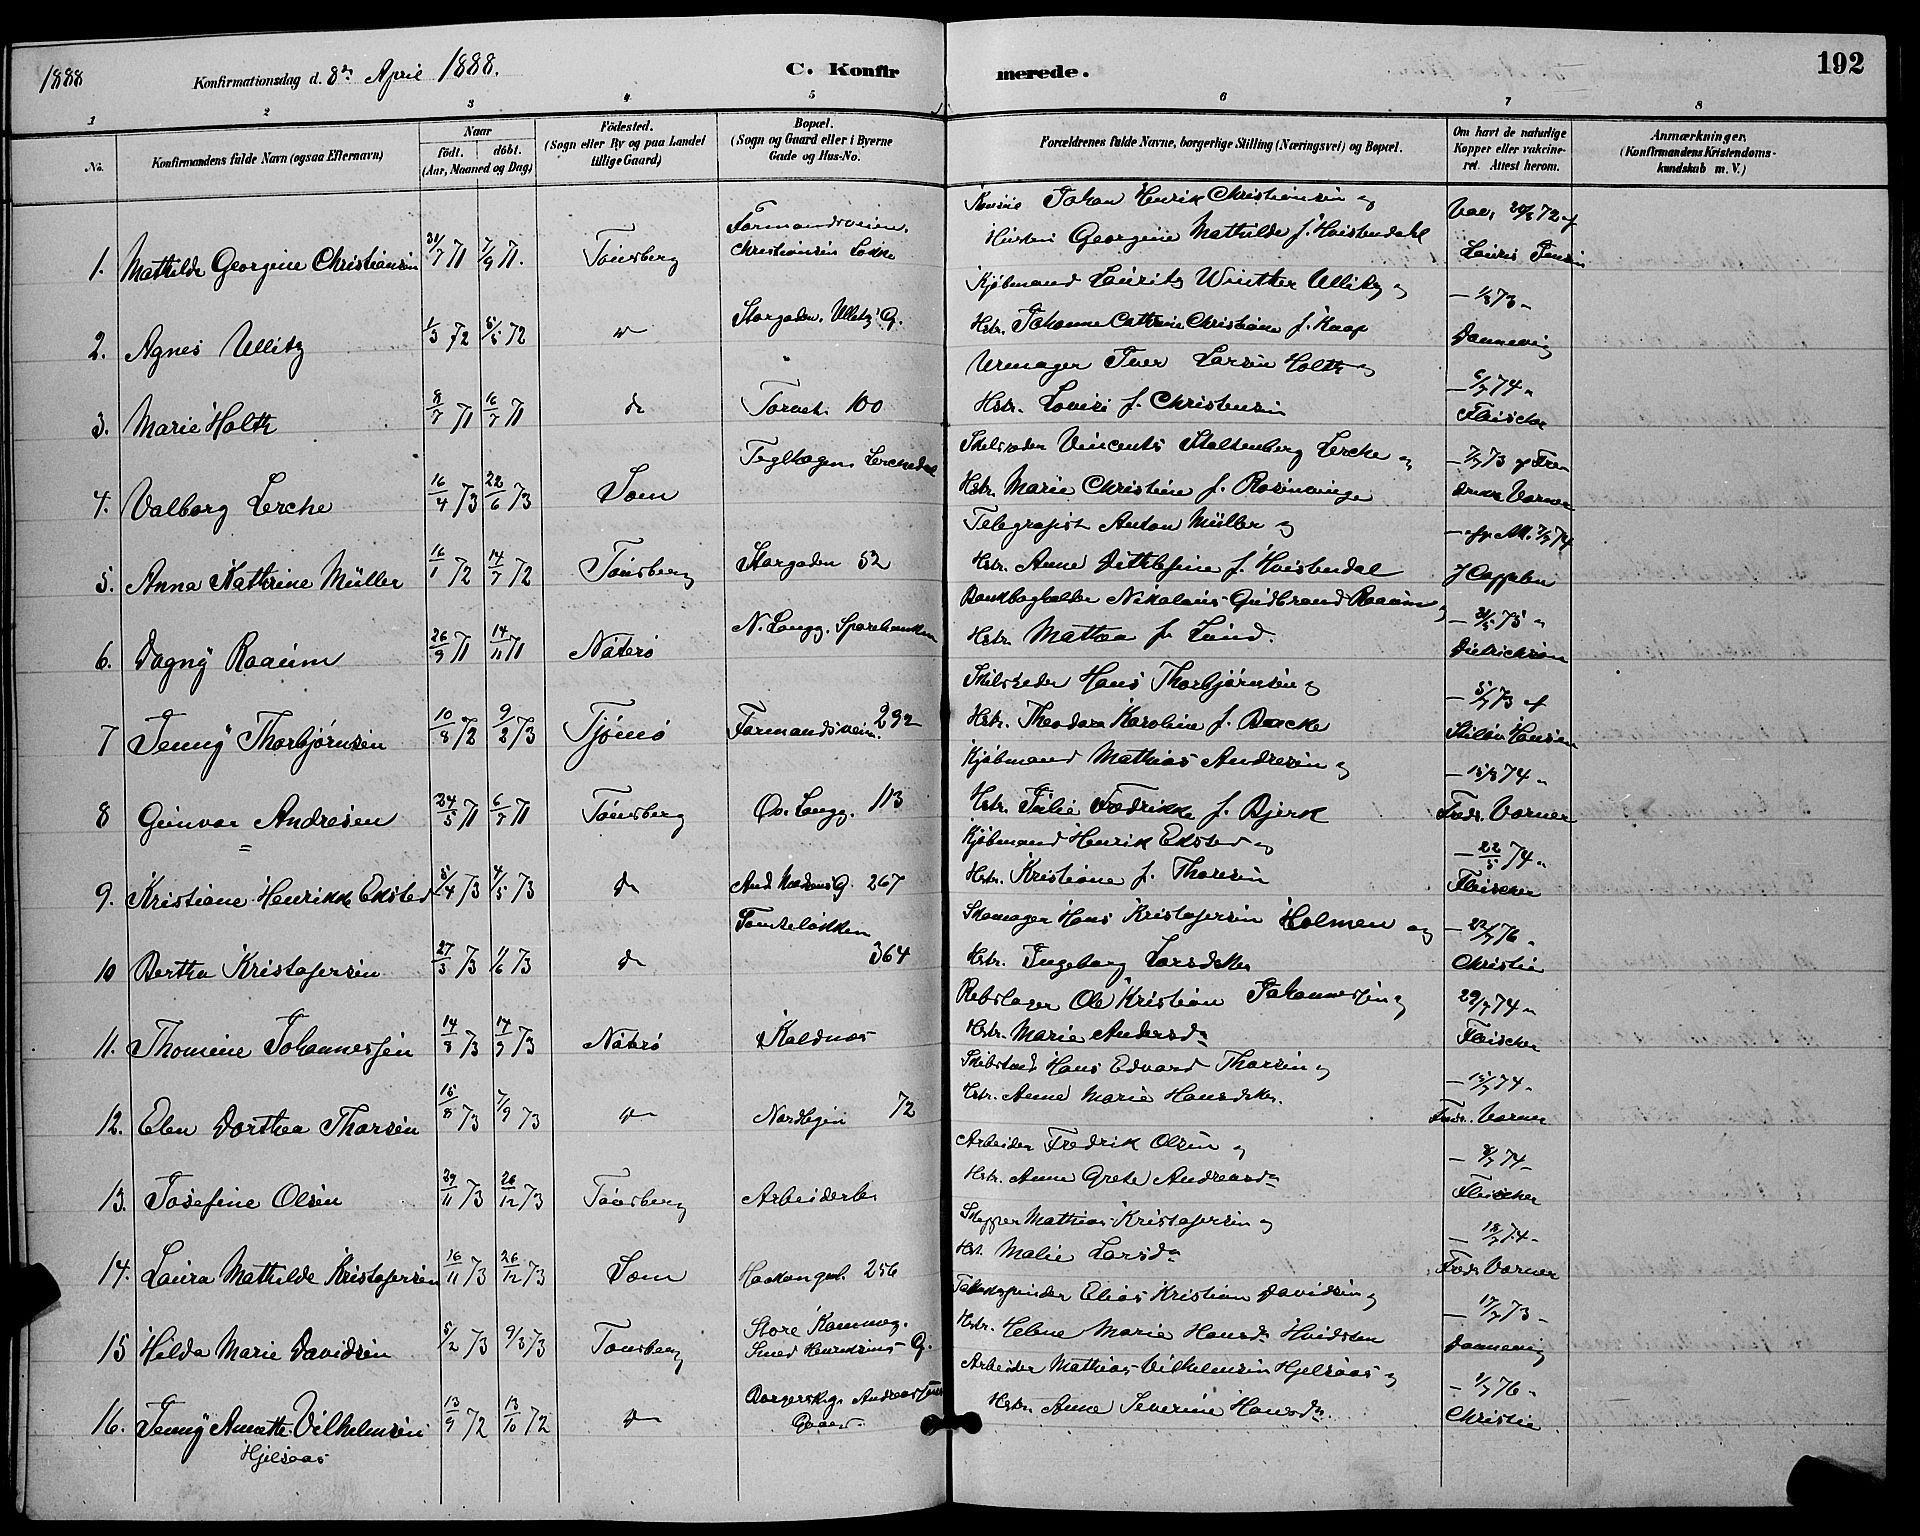 1888
Konfirmationsdag d. 8de April 1888.
C. Konfir
merede.
192
1
2
3
4
5
6
7
8
No.
Konfirmandens fulde Navn (ogsaa Efternavn)
Naar
født.
döbt.
(Aar, Maaned og Dag)
Födested.
(Sogn eller By og paa Landet
tillige Gaard)
Bopæl.
(Sogn og Gaard eller i Byerne
Gade og Hus-No.
Forældrenes fulde Navne, borgerlige Stilling (Næringsvei) og Bopæl.
Om havt de naturlige
Kopper eller vakcine-
ret. Attest herom.
Anmærkninger.
(Konfirmandens Kristendoms-
kundskab m. V.)
1. Mathilde Georgine Christiansen 7/9 71. Tönsberg
Formandsveien.
Christiansens Løkke
Johan Henrik Christiansen og
Hustru Georgine Mathilde f. Hvistendahl
2. Agnes Ullitz 1/3 72 5/5 72 do
Storgaden. Ullitz' G.
Kjøbmand Lauritz Winther Ullitz og
Hstr. Johanne Cathrine Christiane f. Kaap
Dannevig
3. Marie Holth 8/7 71 16/7 71 do Torvet 100
Urmager Iver Larsen Holth og
Hstr. Lovise f. Christensen
6/7 74 "
Fleischer
4. Valborg Lerche 16/4 73 22/6 73 Sem
Teglhagen Lerchedal
Vincents Stoltenberg Lerche og
Hstr. Marie Christine f. Rosenvinge
5. Anna Kathrine Müller 16/1 72 14/7 72 Tönsberg Storgaden 52
Telegrafist Anton Müller og
Hstr. Anne Ditlefine f. Hvistendal
J Cappelen
6. Dagny Raaum 26/9 71 14/11 71 Nøterø
N. Langg. Sparebanken
Bankbogholder Nikolaus Gudbrand Raaum og
Hstr. Mathea f. Lund.
Dietrichson
7 Jenny Thorbjørnsen 10/8 72 9/2 73 Tjømø Formandsveien. 292
Skibsreder Hans Thorbjørnsen og
Hstr. Theodora Karoline f. Backe
5/7 73 af
8 Gunvar Andresen 24/5 71 6/7 71 Tönsberg Øv. Langg. 113
Kjøbmand Mathias Andresen og
Hstr. Julie Fredrikke f. Bjerk
Fredr. Vorner
9. Kristiane Henrikke Eksted 5/4 73 4/5 73 do 267
Kjøbmand Henrik Eksted og
Hstr. Kristiane f. Thoresen
22/5 74 "
Fleischer
10 Bertha Kristofersen 27/3 73 1/6 73 do
364
Skomager Hans Kristofersen Holmen og
Hstr. Ingeborg Larsdatter
22/7 76 "
Christie
11. Thomine Johannessen 14/8 73 14/9 73 Nøterø Kaldnæs
Rebslager Ole Kristian Johannessen og
Hstr. Marie Andersdr
29/7 74 "
Fleischer
12. Elen Dorthea Thorsen 15/8 73 7/9 73 do Nordbyen 72
Hans Edvard Thorsen og
Hstr. Anne Marie Hansdatter.
15/7 74 -
Fredr. Vorner
13. Josefine Olsen 29/11 73 26/12 73 Tönsberg Arbeiderb.
Arbeider Fredrik Olsen og
Hstr. Anne Grete Andreasdr
Fleischer
14. Laura Mathilde Kristofersen 16/11 73 26/12 73 Sem Haakongt. 256
Skipper Mathias Kristofersen og
Hst. Malie Larsdr
18/7 74 -
Fredr Vorner
15 Hilda Marie Davidsen 5/2 73 9/3 73 Tönsberg
Store Kammeg.
Smed Henriksens G.
Tobakspinder Elias Kristian Davidsen og
Hstr. Helene Marie Hansdr Hvidsten
17/7 73 -
Dannevig
16. Jenny Annette Vilhelmsen 13/9 72 13/10 72 do
Hjelsaas
Gaard
Arbeider Mathias Vilhelmsen Hjelsaas og
Hstr. Anne Severine Hansdr.
Christie